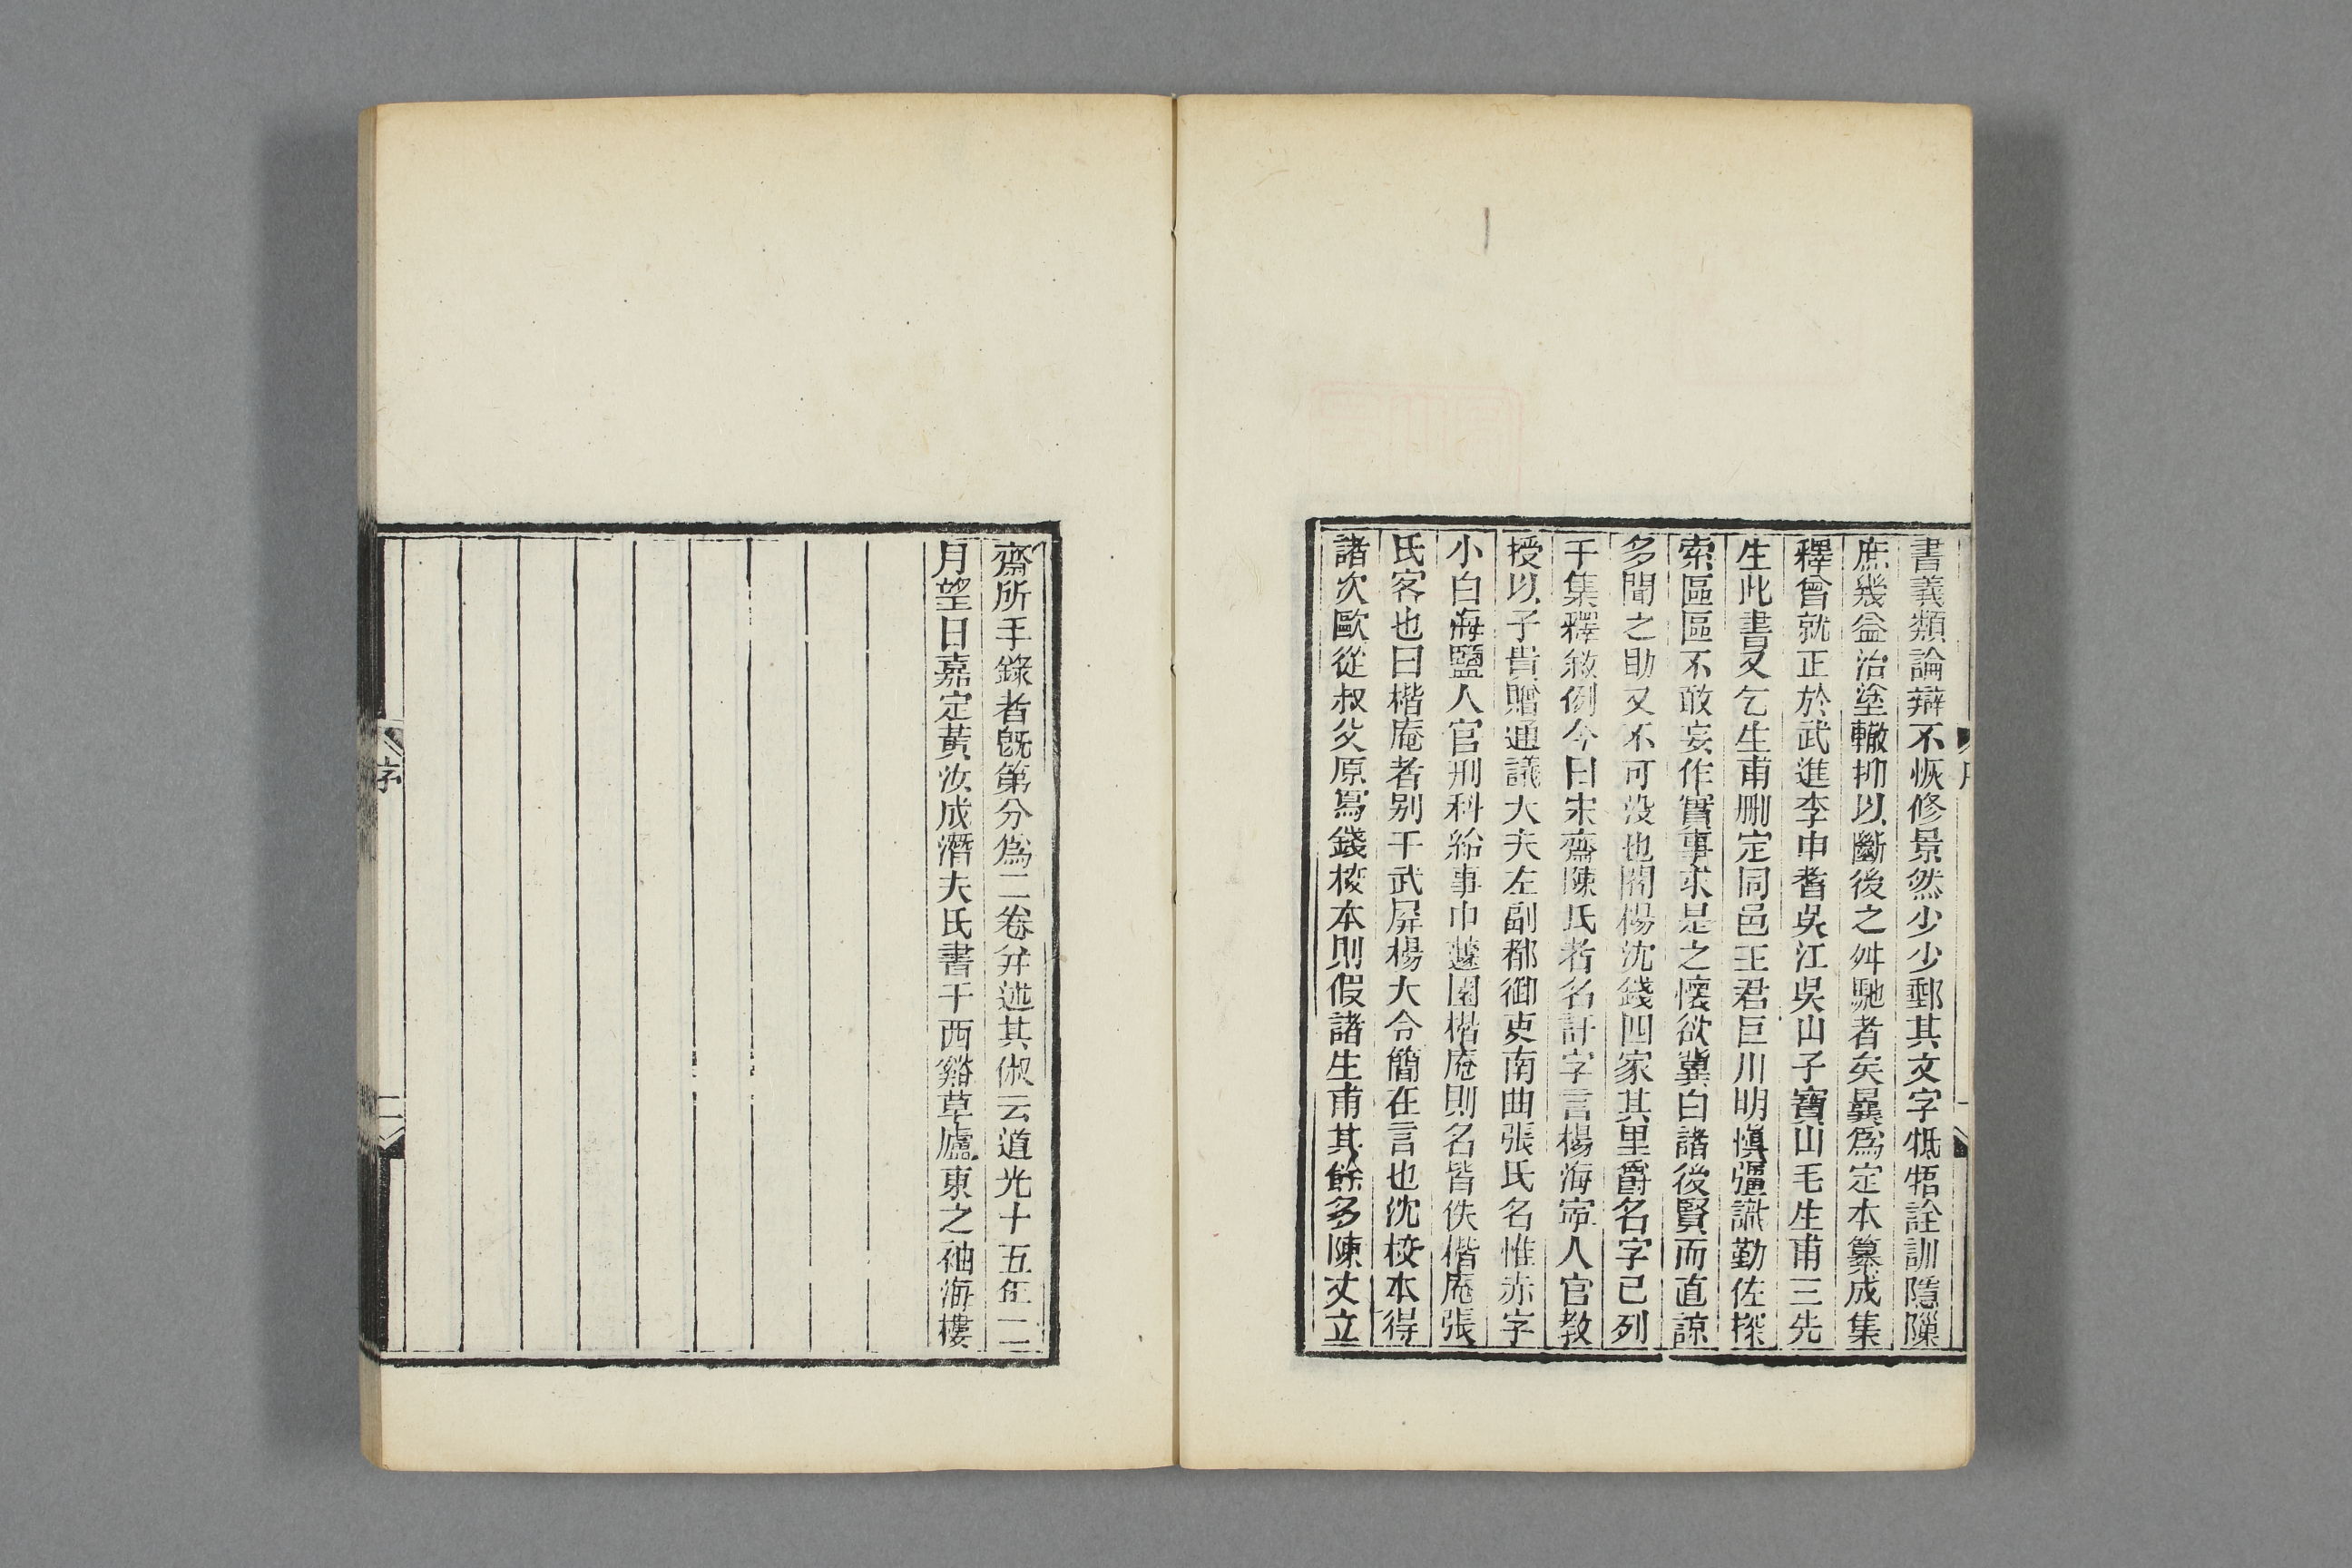 書義類論辯不恢修景然少少郵其文字牴牾詮訓隱隟
庶幾益治塗轍抑以斷後之舛馳者矣曩爲定本纂成集
釋曾就正於武進李申耆吳江吳山子寶山毛生甫三先
生此書又乞生甫刪定同邑王君巨川明愼彊識勤佐探
索區區不敢妄作實事求是之懷欲冀白諸後賢而直諒
多聞之助又不可没也閻楊沈錢四家其里爵名字已列
于集釋敘例今曰宋齋陳氏者名訏字言楊海寧人官教
授以子貴贈通議大夫左副都御史南曲張氏名惟赤字
小白海鹽人官刑科給事中蘧園楷庵則名皆佚楷庵張
氏客也曰楷庵者别于武屏楊大令簡在言也沈校本得
諸次歐從叔父原寫錢校本則假諸生甫其餘多陳丈立
齋所手錄者旣第分爲二卷并述其俶云道光十五年二
月望日嘉定黃汝成潛夫氏書于西谿草廬東之袖海樓
序
二